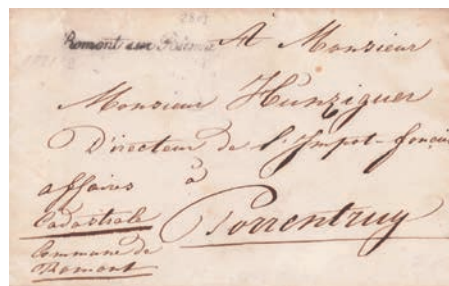 Romont sur Bienne
A Monsieur
Monsieur Hunziguer
Directeur de l'Impot-foncier
à
Porrentruy
affaires
Cadastrale
Commune de
Romont